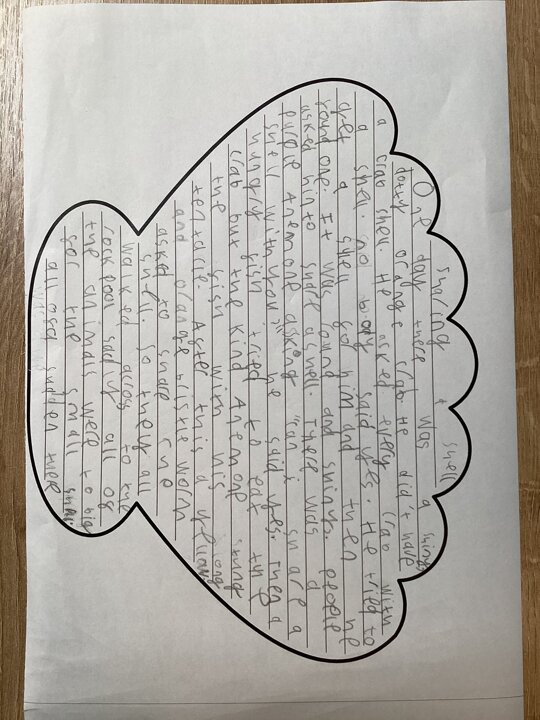 sharing a shell
One day there was a shiny
dotty orange crab. He didn't have
a crab shell. He asked every crab with
a shell. no body said yes. He tried to
get a shell for him and then he
found one. It was round and shiny. people
asked him to share a shell. There was a
purple Anemone asking "can i share a
shell with you" he said yes. Then a
hungry fish tried to eat the
crab but the kind Anemone stung
the fish with his long
tentacle. After this a yellow
and orange bristle worm
asked to share the
shell. so they all
walked across to the
rockpool sadly all of
the animals were to big
for the small shell
all ofa sudden there